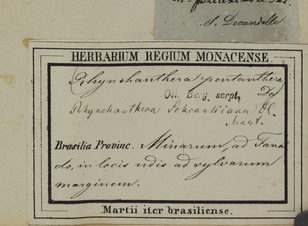 A. Decandolle
HERBARIUM REGIUM MONACENSE.
Rhynchanthera pentanthera
Ott. Berg. scrpt. Dc
Rhynchanthera Schrankiana DC.
Mart.
Brasilia Provinc. Minarum, ad Tana
do, in locis udis ad sylvarum
marginem.
Martii iter brasiliense.